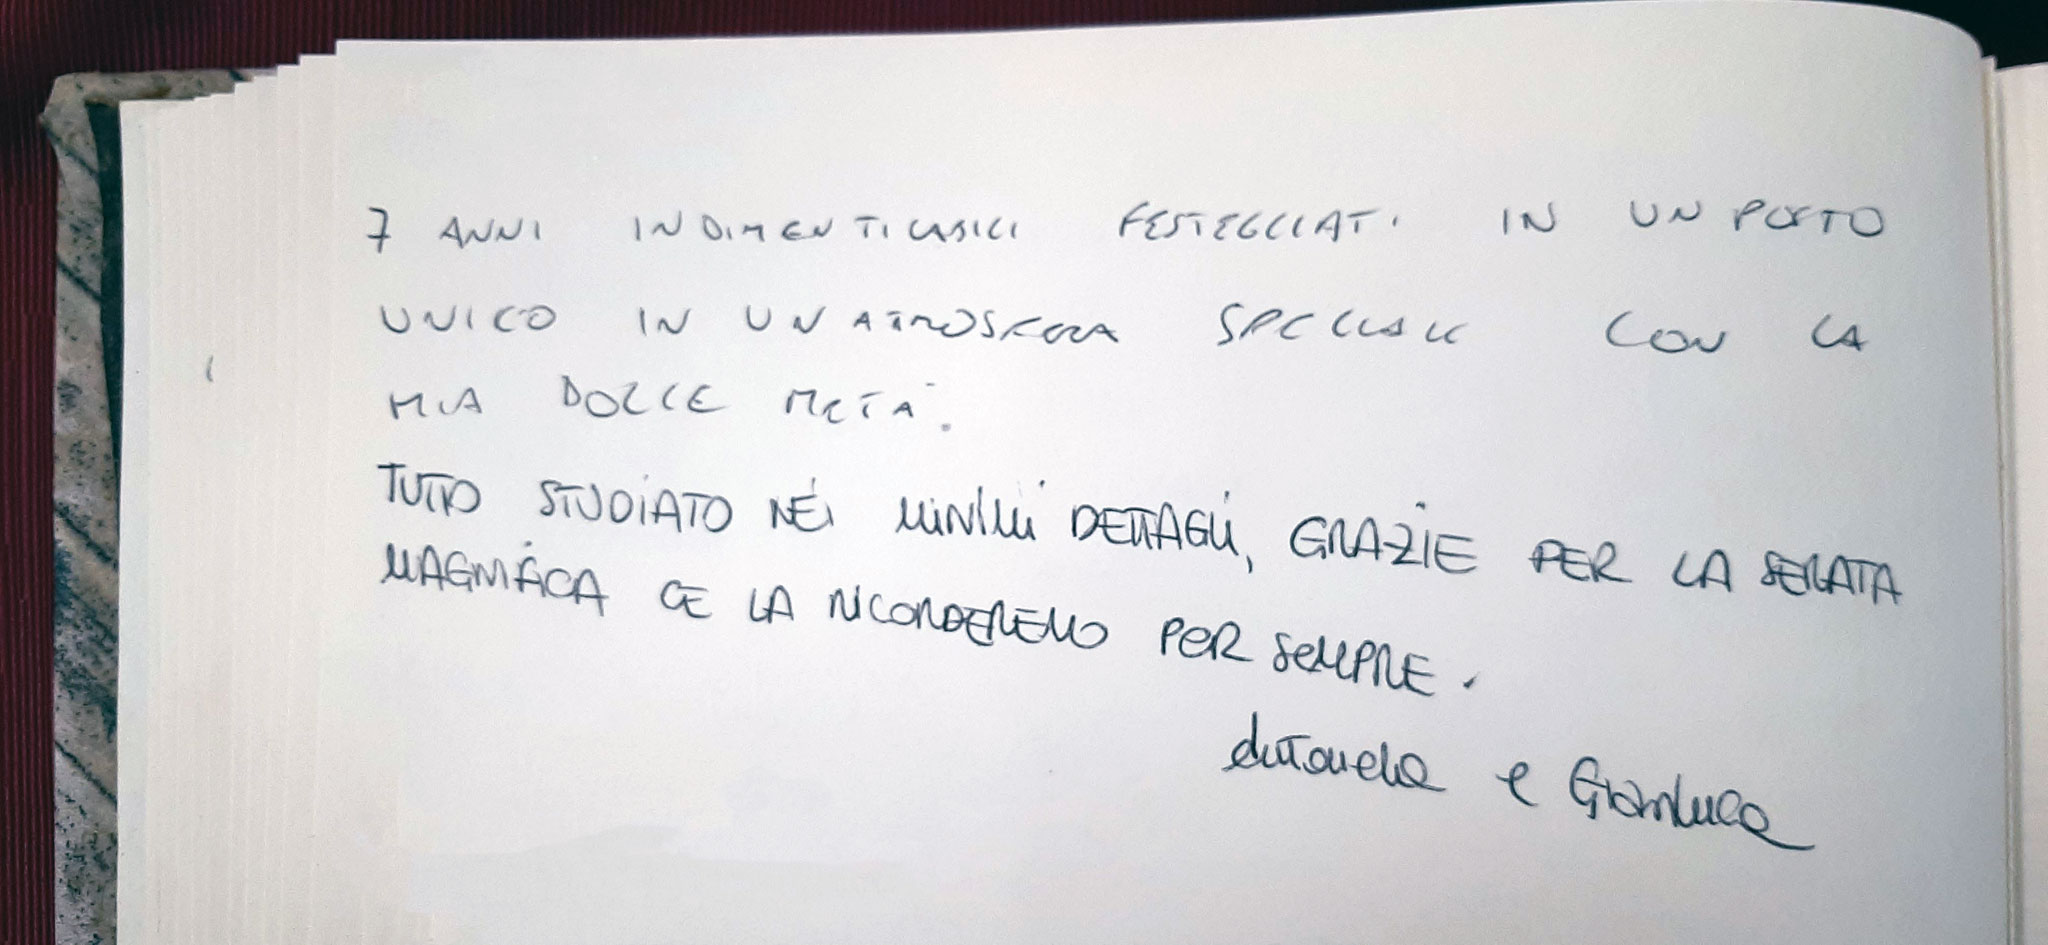 7 ANNI INDIMENTICABILI FESTEGGIATI IN UN POSTO
UNICO IN UN ATMOSFERA SPECIALE CON LA
MIA DOLCE METÀ.
TUTTO STUDIATO NEI MINIMI DETTAGLI, GRAZIE PER LA SERATA
MAGNIFICA CE LA RICORDEREMO PER SEMPRE.
Antonella e Gianluca